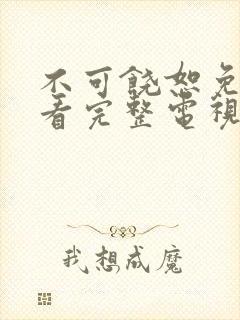 不可饶恕免
看完整電視
我想成魔